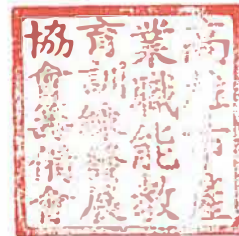 高雄市產
業職能教
育訓練發展
協會籌備會